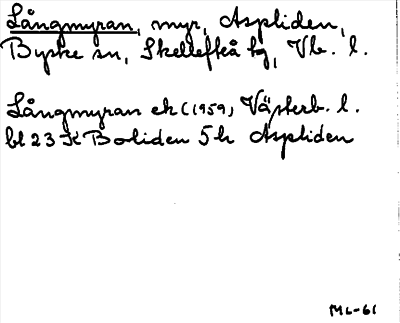 Långmyran, myr, Aspliden,
Byske sn, Skellefteå tg, Vb. l.
Långmyran ek (1959) Västerb. l.
bl 23 K Boliden 5h Aspliden
ML-61